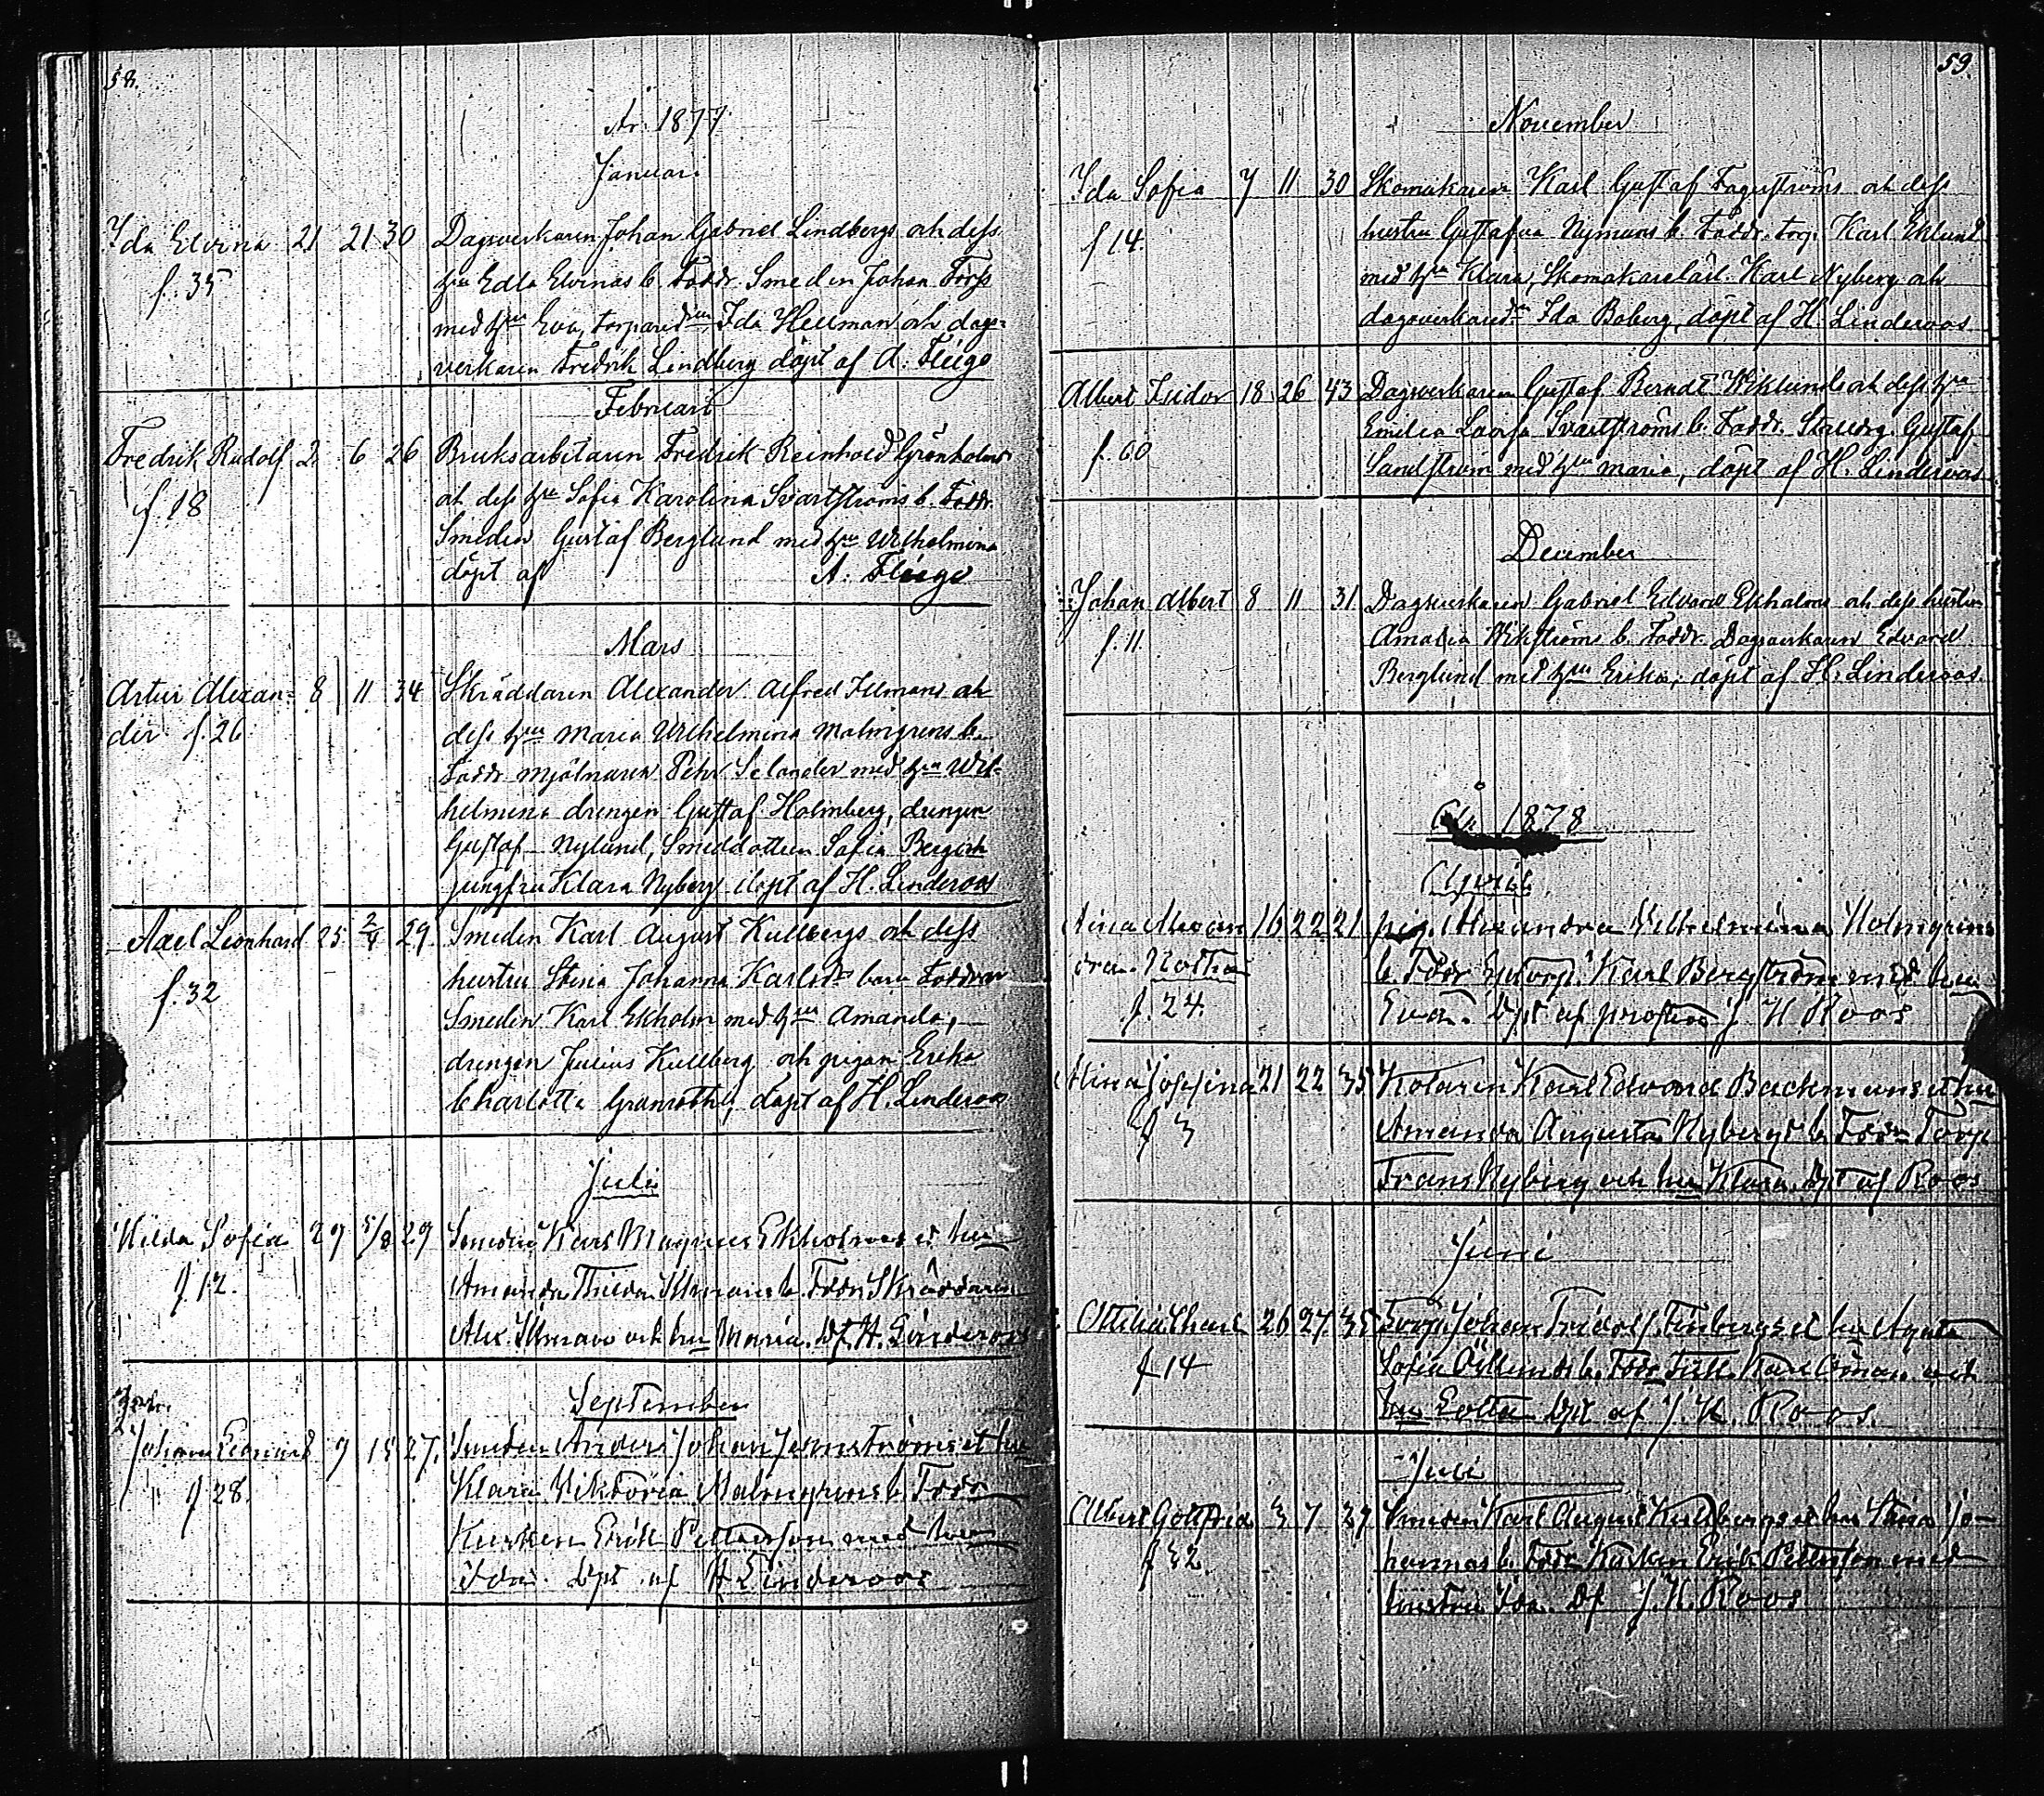 58.
År 1877
Januari
Ida Elvina 21 21 30 Dagsverkaren Johan Gabriel Lindbergs och dess
f. 35 hru Edla Elvinas b. Faddr. Smeden Johan Forss
med hru Eva, torpared:n Ida Hellman och dags-
verkaren Fredrik Lindberg döpt af A. Fleege
Februari
Fredrik Rudolf 2 6 26 Bruksarbetaren Fredrik Reinhold Grönholms
f. 18 och dess hru Sofia Karolina Svartströms b. Faddr.
Smeden Gustaf Berglund med hru Wilhelmina
döpt af A. Fleege
Mars
Artur Alexan- 8 11 34 Skräddaren Alexander Alfred Illmans och
der f. 26 dess hru Maria Wilhelmina Malmgrens b.
Faddr mjölnaren Pehr Selander med hru Wil-
helmina drengen Gustaf Holmberg, drengen
Gustaf Nylund, Smeddottren Sofia Berg och
jungfru Klara Nyberg döpt af H. Linderoos
Axel Leonhard 25 2/4 29 Smeden Karl August Kullbergs och dess
f. 32 hustru Stina Johanna Karlsdr barn Faddrar
Smeden Karl Ekholm med hru Amanda,
drengen Julius Kullberg och pigan Erika
Charlotta Granroth, döpt af H. Linderoos
Juli
Hilda Sofia 29 5/8 29 Smeden Karl Magnus Ekholms et hu
f. 12. Amanda Thilda Illmans b. Faddr Skräddaren
Alex. Illman och hu Maria. Dpt. H. Linderoos
September
Johan Leonard 9 15 27. Smeden Anders Johan Jernströms et hu
f 28. Klara Viktoria Malmgrens b. Faddr
Kusken Erik Petterson med hu
Ida. Dpt af H Linderoos
59.
November
Ida Sofia 7 11 30 Skomakaren Karl Gustaf Fagerströms och dess
f 14. hustru Gustafva Nymans b. Faddr. torp. Karl Eklund
med hru Klara, Skomakarelärl. Karl Nyberg och
dagsverkared:n Ida Boberg, döpt af H. Linderoos
Albert Isidor 18 26 43 Dagsverkaren Gustaf Berndt Wiklunds och dess hru
f. 60 Emilia Lovisa Svartströms b. Faddr. Stalldrg. Gustaf
Sandström med hru Maria, döpt af H. Linderoos
December
Johan Albert 8 11 31 Dagsverkaren Gabriel Edvard Ekholms och dess hustru
f. 11. Amalia Wikströms b. Faddr. Dagsverkaren Edvard
Berglund med hru Erika, döpt af H. Linderoos.
År 1878
April
Aina Alexan 16 22 21 pig. Alexandra Vilhelmina Holmgrens
dra. Notha b. Fddr Karl Bergström med hu
f. 24. Eva. Dpt af prosten J H Roos
Alina Josefina 21 22 35 Kolaren Karl Edvard Backmans et hu
f 3 Amanda Augusta Nybergs b. Faddr Torp
Frans Nyberg och hu Klara. Dpt af Roos
Juni
Ottilia Charl 26 27 35 Torp Johan Fridolf Finbergs et hu Agata
f 14 Sofia b. Fddr. Karl Öman och
hu Lotta Dpt af J. H. Roos.
Juli
Albert Gottfrid 3 7 29 Smeden Karl August Kullbergs et hu Stina Jo-
f 32. hannas b. Fddr Kusken Erik Petterson med
hustru Ida. Df J. H. Roos